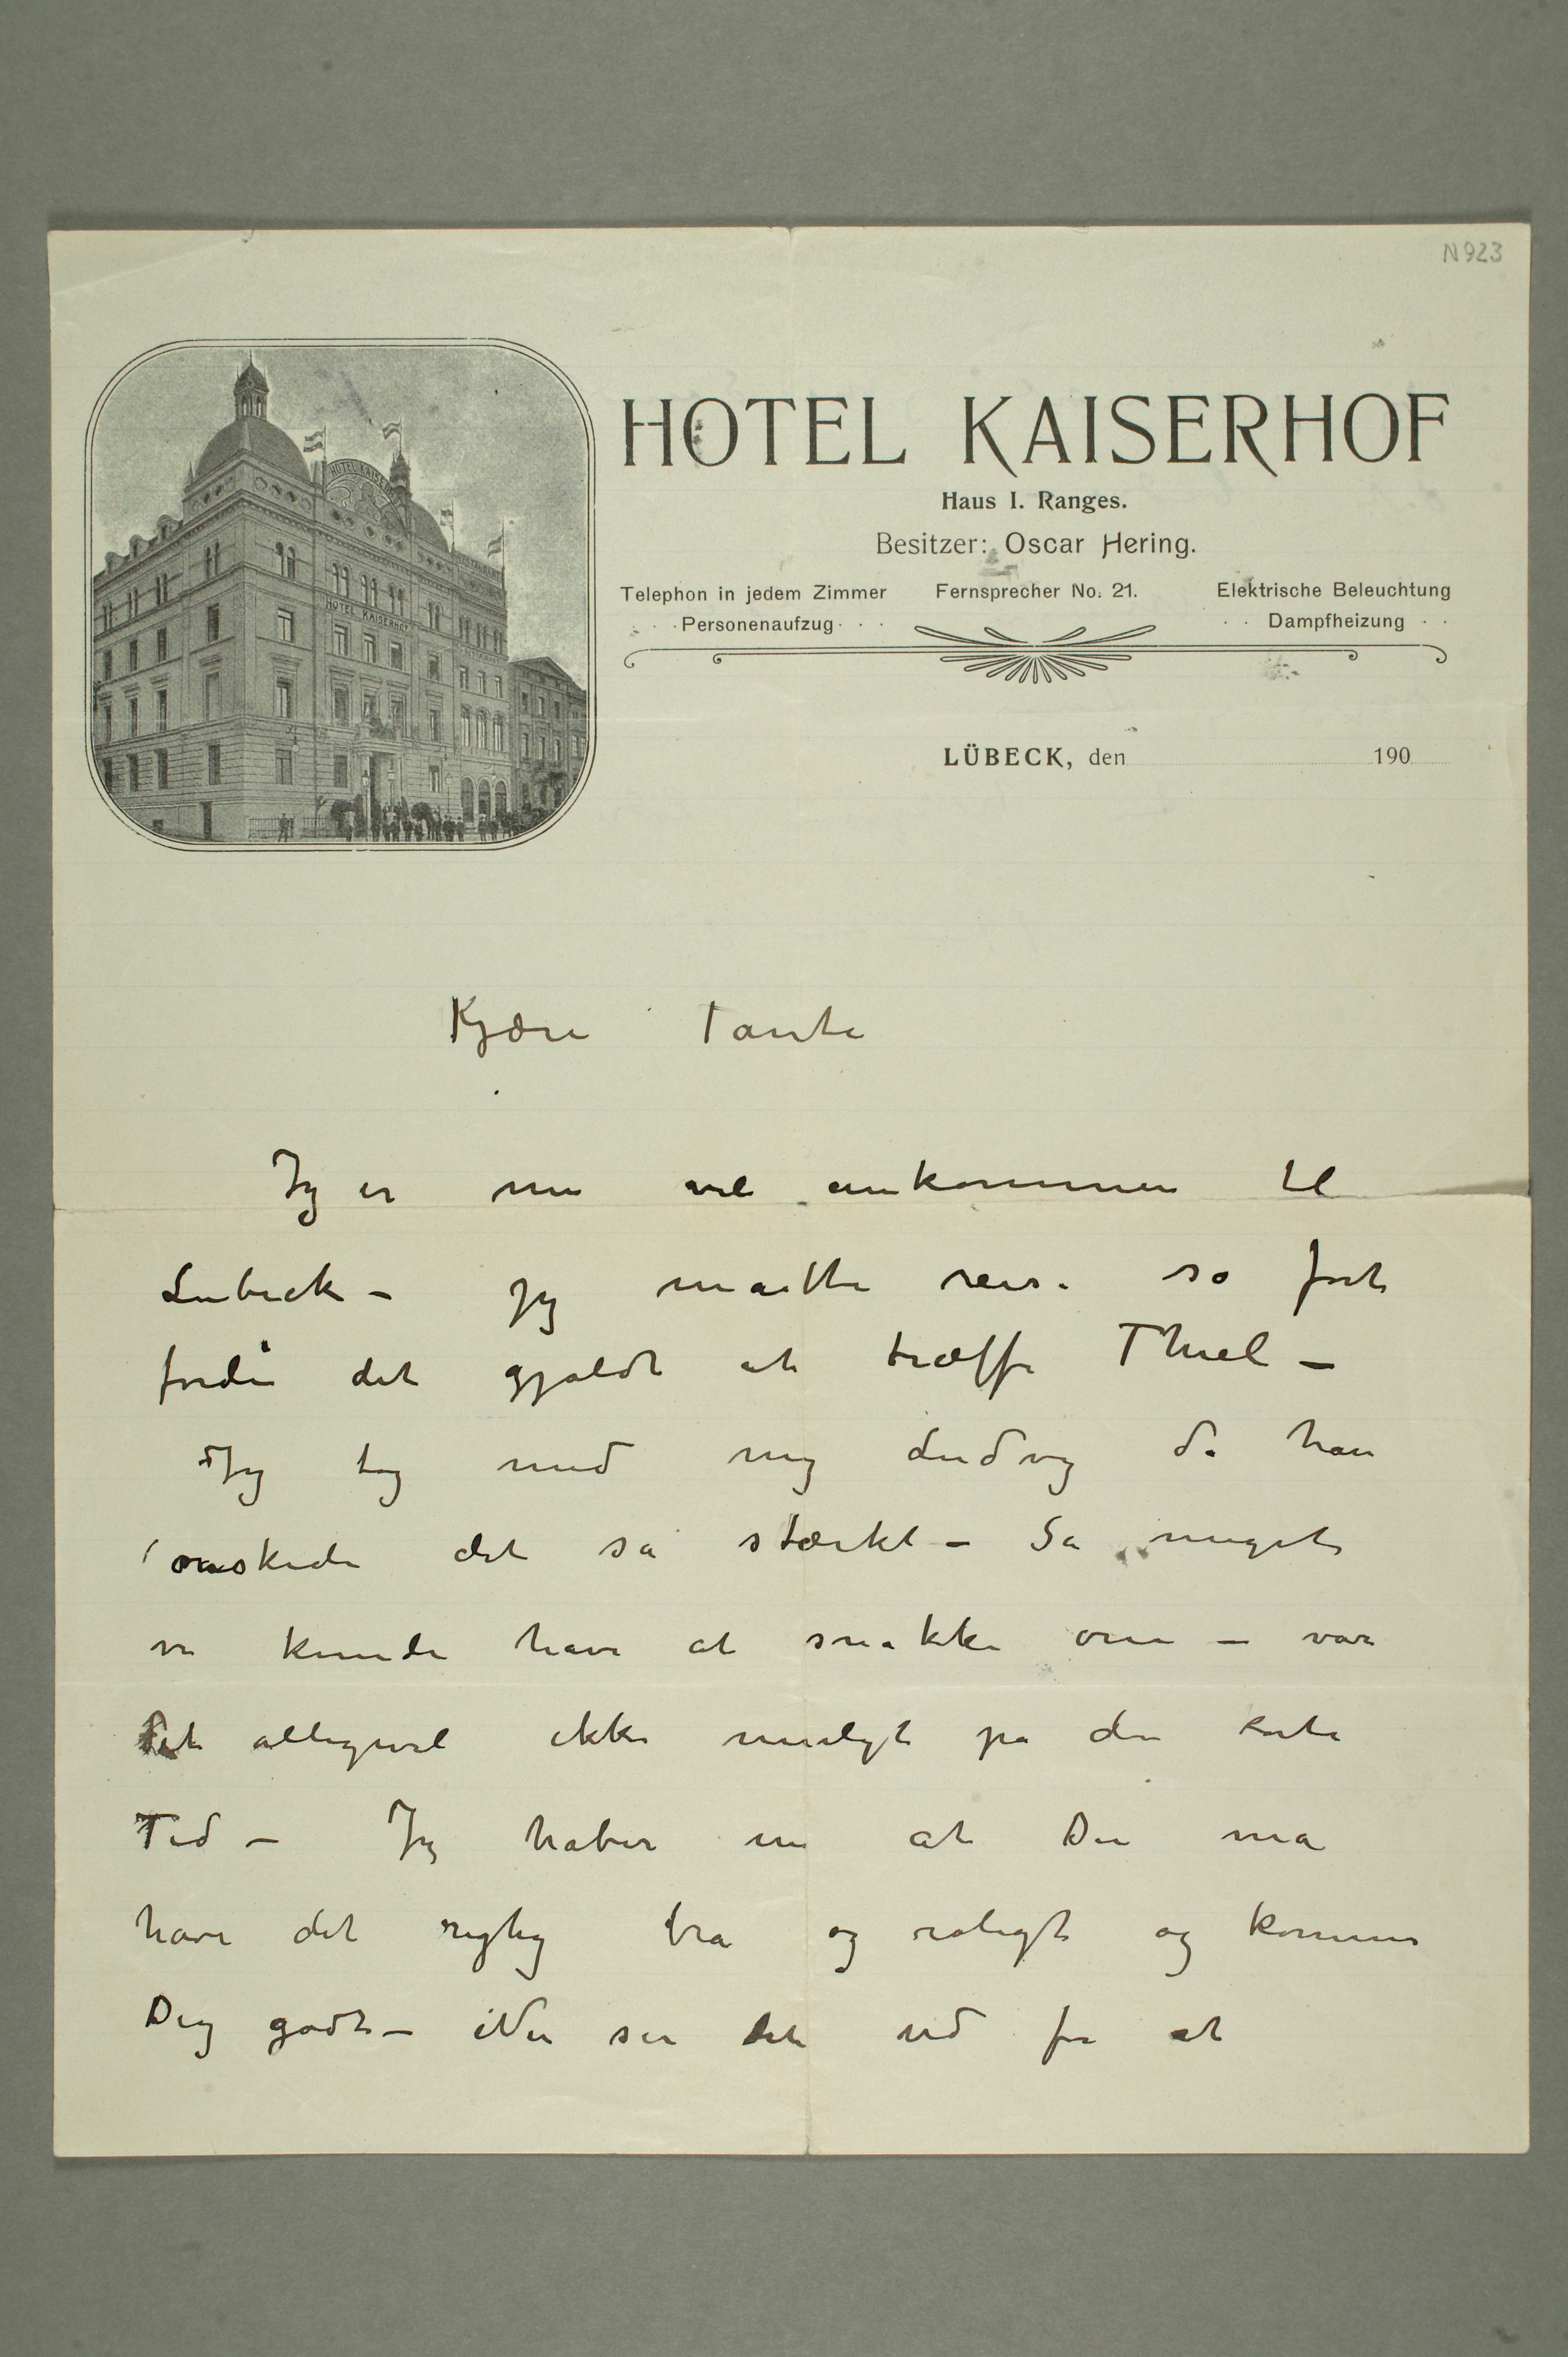 N 923
HOTEL KAISERHOF
Haus I. Ranges.
Besitzer: Oscar Hering.
Telephon in jedem Zimmer Fernsprecher No. 21. Elektrische Beleuchtung
Personenaufzug Dampfheizung
HOTEL KAISERHOF
LÜBECK, den 190
Kjære Tante
Jeg er nu vel ankommen til
Lubeck – jeg måtte reise så fort
fordi det gjaldt at træffe Thiel –
Jeg tog med mig Ludvig da han
ønskede det så stærkt – Så meget
vi kunde have at snakke om – var
det alligevel ikke muligt på den korte
Tid – Jeg håber nu at Du må
have det rigtig bra og roligt og komme
Dig godt – Nu ser det ud for at